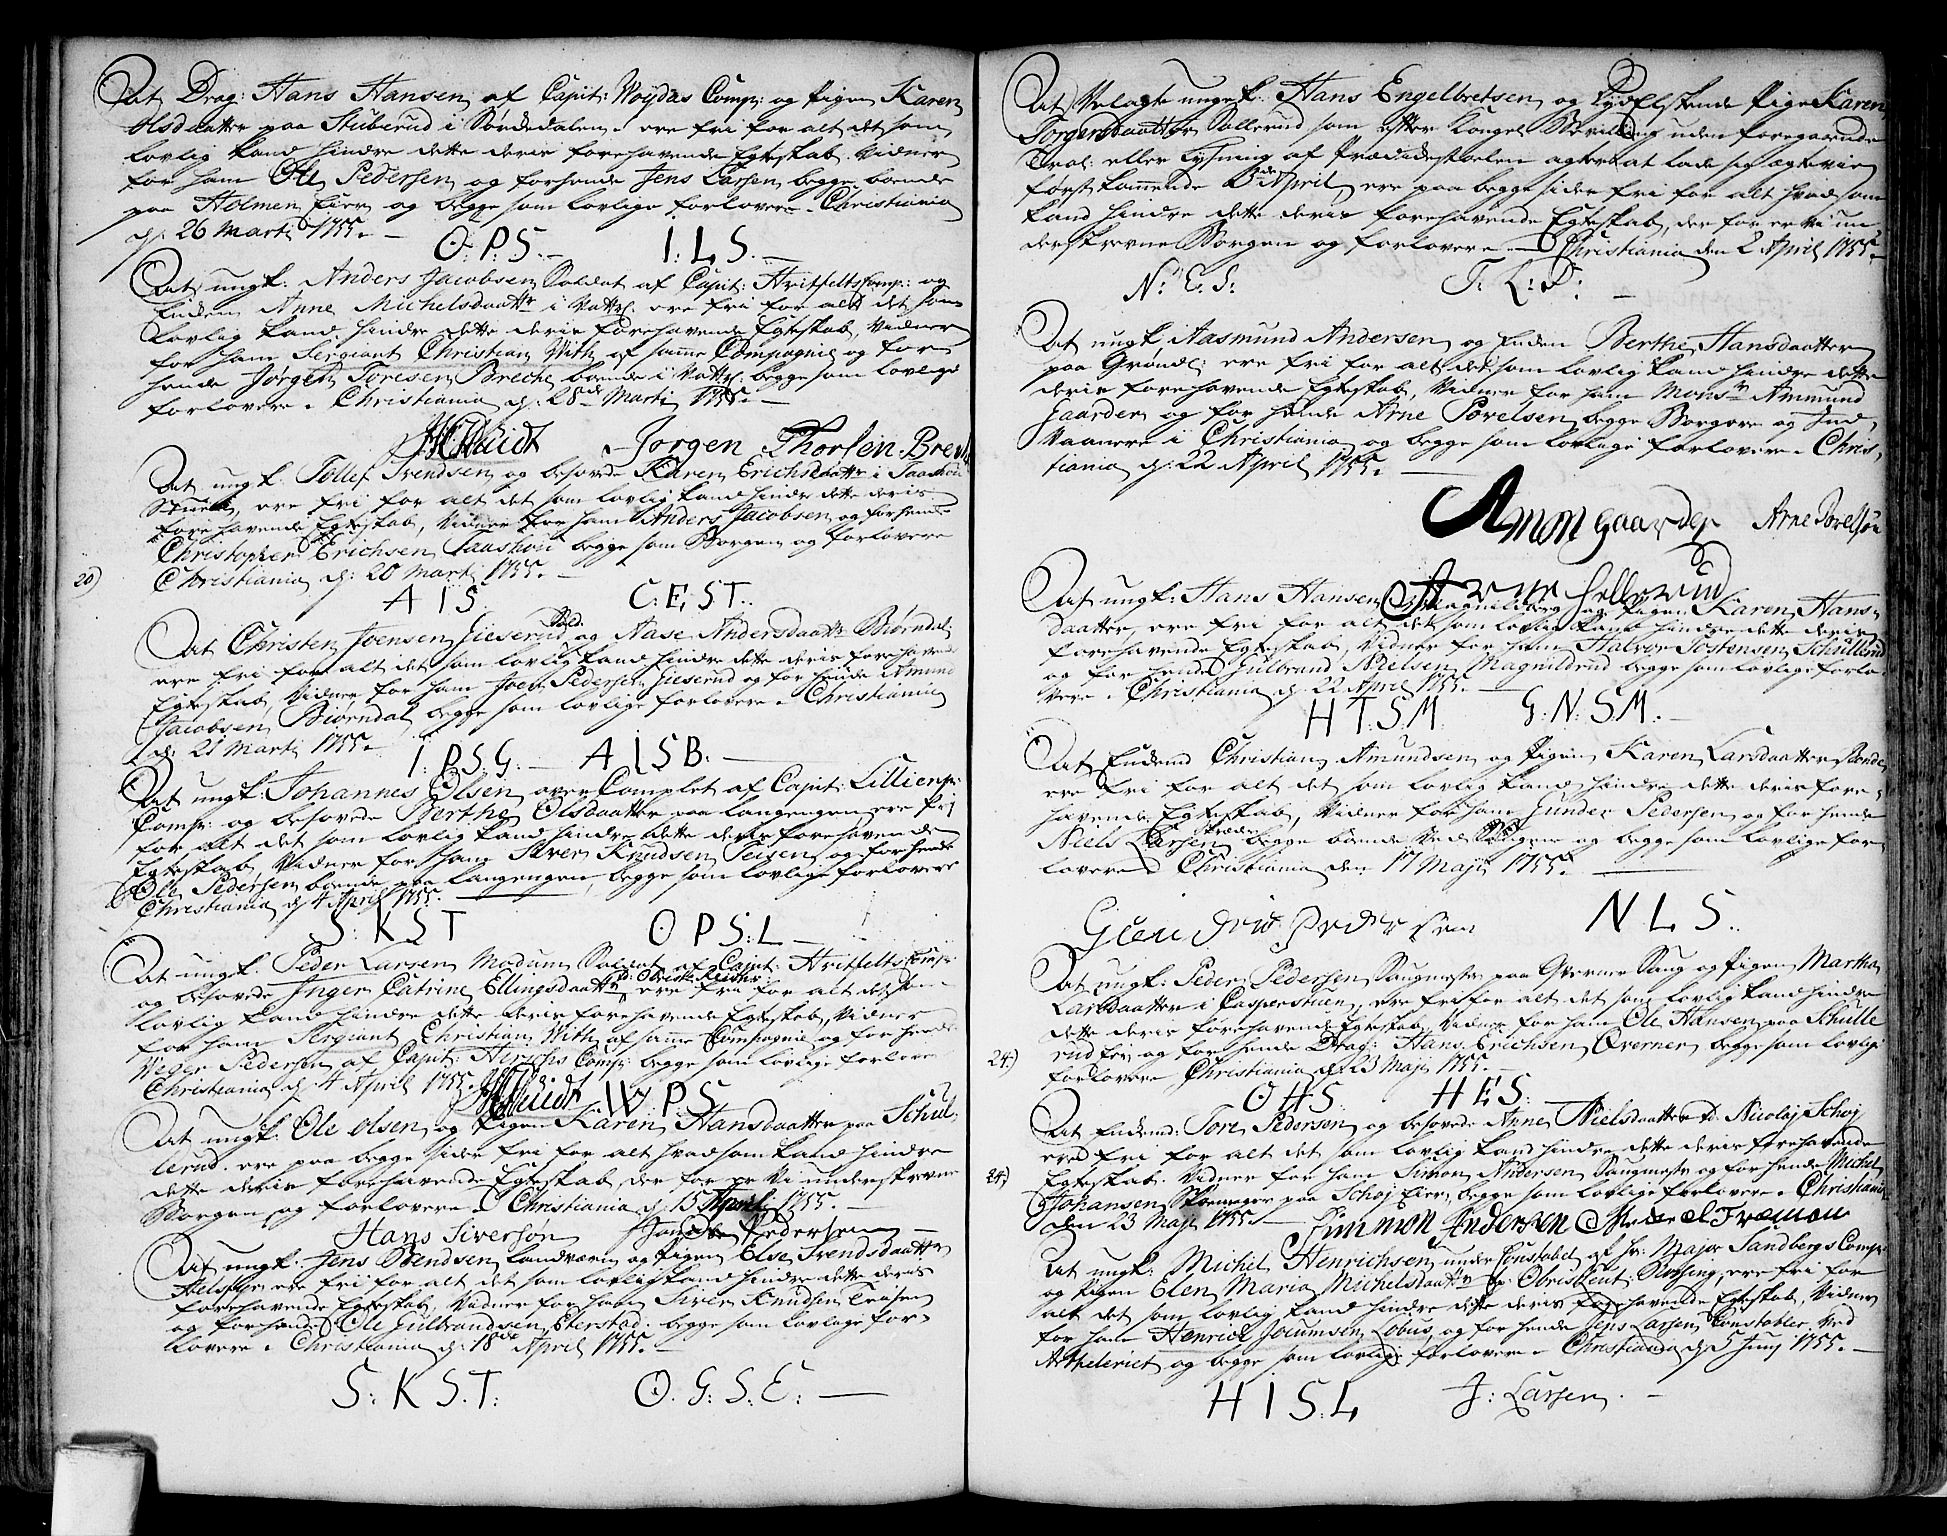 At Drag: Hans Hansen af Capit: Woydas Comp: og Pigen Karen
Olsdaatter paa Stuberud i Sørdedalen ere fri for alt det som
lovlig kand hindre dette deris forehavende Egteskab. Vidner
for ham Ole Pedersen og for hende Jens Larsen begge boende
paa Holmen Eier og begge som lovlige forlovere. Christiania
d: 26 Marti 1755.
O.P.S. I.L.S.
At ungk: Anders Jacobsen Soldat af Capit: Hvitfelts Comp: og
Enken Anne Michelsdaattr i Vattrl. ere fri for alt det som
lovlig kand hindre dette deris forehavende Egteskab, Vidner
for ham Sergiant Christian With af samme Compagnie og for
hende Jørgen Toresen Breche boende i Vattrl. begge som lovlige
forlovere. Christiania d: 28de Marti 1755.
Jørgen Thorsen Brech
At ungk: Tollef Svendsen og besovde Karen Erichsdaattr i Taashou
Stuen, ere fri for alt det som lovlig kand hindre dette deris
forehavende Egteskab, Vidner for ham Anders Jacobsen og for hende
Christopher Erichsen Taashou begge som Borgen og forlovere
20) Christiania d: 20 Marti 1755.
A I S. C: E. S T.
At Christen Joensen Gieserud Sold: og Aase Andersdaattr Biørndal
ere fri for alt det som lovlig kand hindre dette deris forehavende
Egteskab, Vidner for ham Joen Pedersen Gieserud og for hende Amund
Jacobsen Biørndal begge som lovlige forlovere. Christiania
d: 21 Marti 1755.
I. P S. G. A I S B.
At ungk: Johannes Olsen over Complet af Capit: Lillienp:
Comp: og besovede Berthe Olsdaatter paa Langengen ere fri
for alt det som lovlig kand hindre dette deris forehavende
Egteskab, Vidner for ham Siver Knudsen Teisen og for hende
Ole Pedersen boende paa Langengen, begge som lovlige forlovere
Christiania d: 4 April 1755.
S. K S T O P S: L
At ungk: Peder Larsen Modum Soldat af Capit: Hvitfelts Comp:
og besovede Inger Catrine Ellingsdaattr ere fri for alt det som
lovlig kand hindre dette deris forehavende Egteskab, Vidner
for ham Sergiant Christian With af samme Compagnie og for hende
Weger Pedersen af Capit: Comp: begge som lovlige forlovere
Christiania d: 4 April 1755.
W. P. S.
At ungk: Ole Olsen og Pigen Karen Hansdaatter paa Schul-
lerud. ere paa begge sider fri for alt hvad som kand hindre
dette deris forehavende Egteskab, der for er Vi underskrevne
Borgen og forlovere. Christiania d: 15 April 1755.
Hans Siversøn Pedersen
At ungk: Jens Bendsen Landværn og Pigen Else Svendsdaattr
ere fri for alt det som lovlig kand hindre dette deris
forehavende Egteskab, Vidner for ham Siver Knudsen Teisen
og for hende Ole Gulbrandsen Eterstad. begge som lovlige for-
lovere. Christiania d: 18de April 1755.
S: K S. T: O. G: S. E:
At Velagte unge k. Hans Engelbretsen og Dydelskende Pige Karen
Torgersdaatter Sollerud som efter Kongel Bevilling uden foregaaende
Trol. eller Lysning af Prædickestoelen agter at lade sig ægtevie
førstkommende April ere paa begge sider fri for alt hvad som
kand hindre dette deris forehavende Egteskab, der for er Vi un-
derskrevne Borgen og forlovere. Christiania den 2 April 1755.
N: E. S: T. L: D:
At ungk: Aasmund Andersen og Enken Berthe Hansdaatter
paa Grøndl: ere fri for alt det som lovlig kand hindre dette
deris forehavende Egteskab, Vidner for ham Monsr Ammund
Gaarder og for hende Arne Povelsen begge Borgere og Ind-
vaanere i Christiania og begge som lovlige forlovere. Chris-
tiania d: 22 April 1755.
Amon gaarder Arne Povelsøn
At ungk: Hans Hansen og Pigen Karen Hans-
daatter, ere fri for alt det som lovlig kand hindre dette deris
forehavende Egteskab, Vidner for ham Halvor Tostensen Schullerud
og for hende Gulbrand Nielsen Magnildrud begge som lovlige forlo-
vere. Christiania d: 22 April 1755.
H T. S. M. G. N: S M.
At Enkemd Christian Amundsen og Pigen Karen Larsdaatter Bonde
ere fri for alt det som lovlig kand hindre dette deris fore-
havende Egteskab, Vidner for ham Gunder Pedersen og for hende
Niels Larsen begge boende Ved og begge som lovlige for-
lovere Christiania den 17 Maji 1755.
N L S.
At ungk: Peder Pedersen Saugmester paa Qverner Saug og Pigen Martha
Larsdaatter i Casperstuen, ere fri for alt det som lovlig kand hindre
dette deris forehavende Egteskab, Vidner for ham Ole Hansen paa Schulle
rud Eie og for hende Drag: Hans Erichsen Qverner begge som lovlige
24) forlovere Christiania d: 23 Maji 1755.
O H S. H E S.
At Enkemd: Tore Pedersen og besovede Anne Nielsdaatter Nicolaj Schøj
ere fri for alt det som lovlig kand hindre dette deris forehavende
24) Egteskab. Vidner for ham Simon Andersen Saugmestr og for hende Michel
Johansen Skomager paa Schøj Eier, begge som lovlige forlovere. Christiania
den 23 Maji 1755. Simmon Andersen
At ungk: Michel Henrichsen under Constabel af Hr: Major Sandbergs Comp:
og Pigen Elen Maria Michelsdaattr ere fri for
alt det som lovlig kand hindre dette deris forehavende Egteskab, Vidner
for ham Henrich Joeumsen Lobus og for hende Jens Larsen Constabler Ved
Arthelleriet og begge som lovlige forlovere. Christiania d: 5 Junij 1755.
H I S: L J: Larsen.